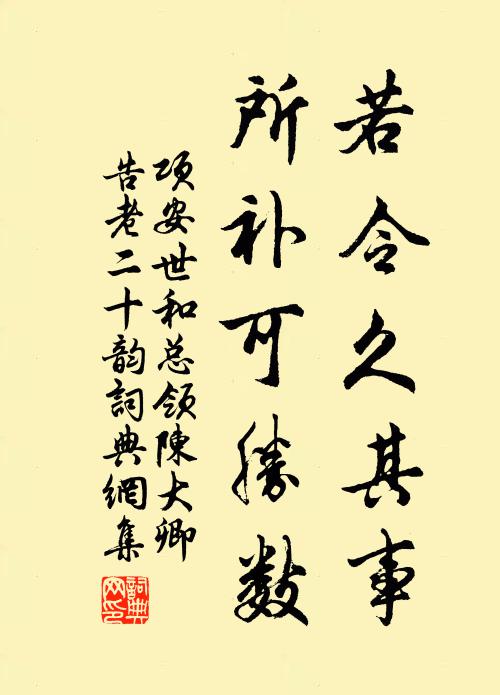 若令久其事
所补可勝数
项安世和总领陳大卿
告老二十韵詞典網集
詞典
网印